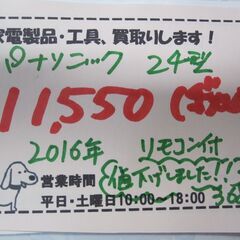 家電製品・工具、買取りします!
パナソニック 24型
11,550
2016年 リモコン付
値下げしました!!
営業時間
平日・土曜日10:00〜18:00